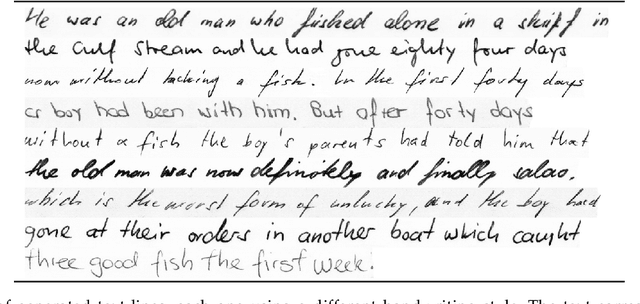 He was an old man who fished alone in a skiff in
the Gulf Stream and he had gone eighty four days
now without taking a fish. In the first forty days
a boy had been with him. But after forty days
without a fish the boy's parents had told him that
the old man was now definitely and finally salao.
which is the worst form of unlucky, and the boy had
gone at their orders in another boat which caught
three good fish the first week.